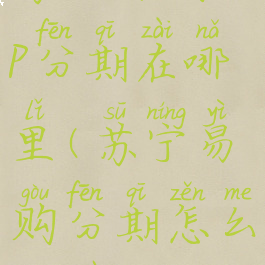 fēn qī zài nǎ
P分期在哪
lǐ sū níng yì
里(苏宁易
gòu fēn qī zěn me
购分期怎么